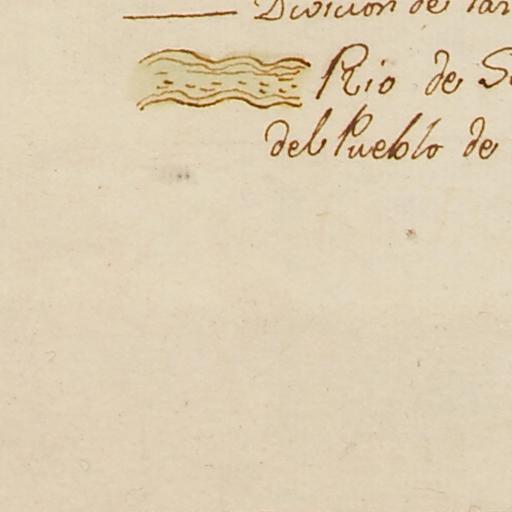 Division de las
Rio de S
del Pueblo de